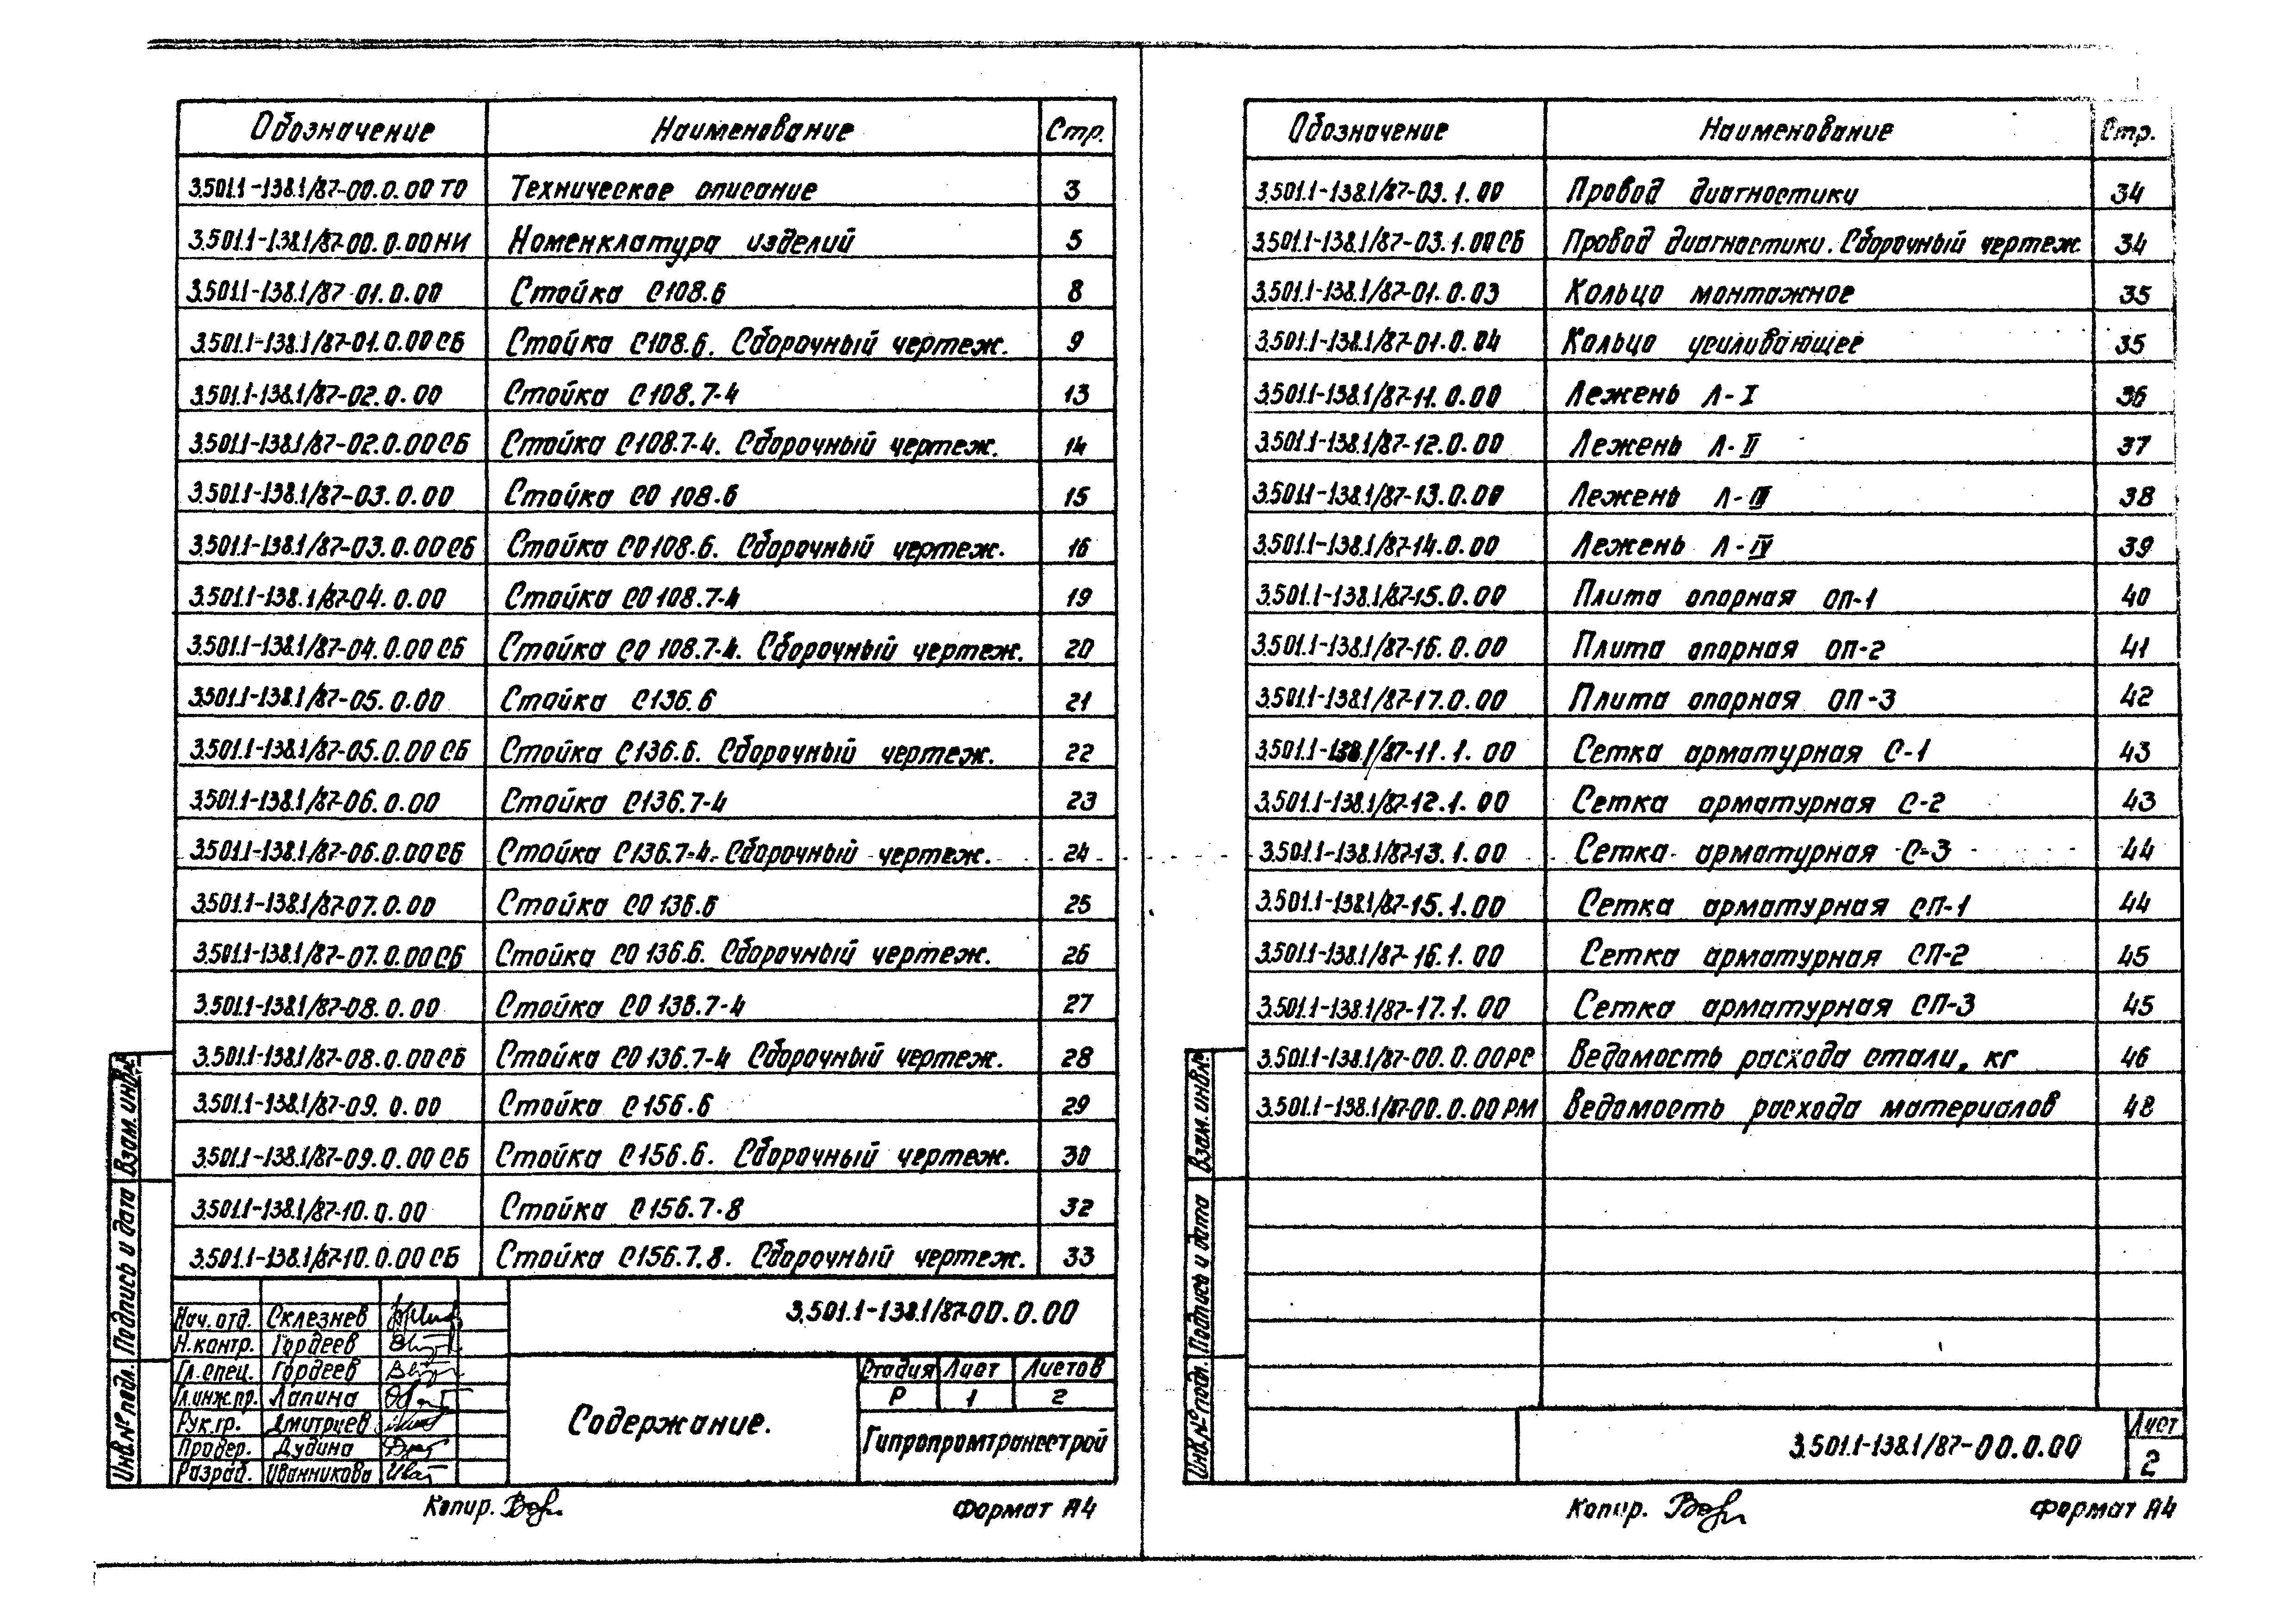 Обозначение Наименование Стр.
3.501.1-138.1/87-00.0.00 ТО Техническое описание 3
3.501.1-138.1/87-00.0.00НИ Номенклатура изделий 5
3.501.1-138.1/87-01.0.00 Стойка С108.6 8
3.501.1-138.1/87-01.0.00СБ Стойка С108.6. Сборочный чертеж. 9
3.501.1-138.1/87-02.0.00 Стойка С108.7-4 13
3.501.1-138.1/87-02.0.00СБ Стойка С108.7-4. Сборочный чертеж. 14
3.501.1-138.1/87-03.0.00 Стойка СО 108.6 15
3.501.1-138.1/87-03.0.00СБ Стойка СО108.6. Сборочный чертеж. 16
3.501.1-138.1/87-04.0.00 Стойка СО 108.7-4 19
3.501.1-138.1/87-04.0.00 СБ Стойка СО 108.7-4. Сборочный чертеж. 20
3.501.1-138.1/87-05.0.00 Стойка С136.6 21
3.501.1-138.1/87-05.0.00 СБ Стойка С136.6. Сборочный чертеж. 22
3.501.1-138.1/87-06.0.00 Стойка С136.7-4 23
3.501.1-138.1/87-06.0.00СБ Стойка С136.7-4. Сборочный чертеж. 24
3.501.1-138.1/87-07.0.00 Стойка СО 136.6 25
3.501.1-138.1/87-07.0.00СБ Стойка СО 136.6. Сборочный чертеж. 26
3.501.1-138.1/87-08.0.00 Стойка СО 136.7-4 27
3.501.1-138.1/87-08.0.00СБ Стойка СО 136.7-4 Сборочный чертеж. 28
3.501.1-138.1/87-09.0.00 Стойка С156.6 29
3.501.1-138.1/87-09.0.00 СБ Стойка С156.6. Сборочный чертеж. 30
3.501.1-138.1/87-10.0.00 Стойка С156.7-8 32
3.501.1-138.1/87-10.0.00 СБ Стойка С156.7.8. Сборочный чертеж. 33
Взам. инв.№
Подпись и дата
Инв.№ подл.
3.501.1-138.1/87-00.0.00
Нач.отд. Склезнев
Н.контр. Гордеев
Гл.спец. Гордеев
Гл.инж.пр. Лапина
Рук.гр. Дмитриев
Провер. Дудина
Разраб. Иванникова
Содержание.
Стадия Лист Листов
Р 1 2
Гипропромтрансстрой
Копир.
Формат А4
Обозначение Наименование Стр.
3.501.1-138.1/87-03.1.00 Провод диагностики 34
3.501.1-138.1/87-03.1.00СБ Провод диагностики. Сборочный чертеж 34
3.501.1-138.1/87-01.0.03 Кольцо монтажное 35
3.501.1-138.1/87-01.0.04 Кольцо усиливающее 35
3.501.1-138.1/87-11.0.00 Лежень Л-I 36
3.501.1-138.1/87-12.0.00 Лежень Л-II 37
3.501.1-138.1/87-13.0.00 Лежень Л-III 38
3.501.1-138.1/87-14.0.00 Лежень Л-IV 39
3.501.1-138.1/87-15.0.00 Плита опорная ОП-1 40
3.501.1-138.1/87-16.0.00 Плита опорная ОП-2 41
3.501.1-138.1/87-17.0.00 Плита опорная ОП-3 42
3.501.1-138.1/87-11.1.00 Сетка арматурная С-1 43
3.501.1-138.1/87-12.1.00 Сетка арматурная С-2 43
3.501.1-138.1/87-13.1.00 Сетка арматурная С-3 44
3.501.1-138.1/87-15.1.00 Сетка арматурная СП-1 44
3.501.1-138.1/87-16.1.00 Сетка арматурная СП-2 45
3.501.1-138.1/87-17.1.00 Сетка арматурная СП-3 45
3.501.1-138.1/87-00.0.00РС Ведомость расхода стали, кг 46
3.501.1-138.1/87-00.0.00 РМ Ведомость расхода материалов 48
Взам. инв.№
Подпись и дата
Инв.№ подл.
3.501.1-138.1/87-00.0.00
Лист
2
Копир.
Формат А4